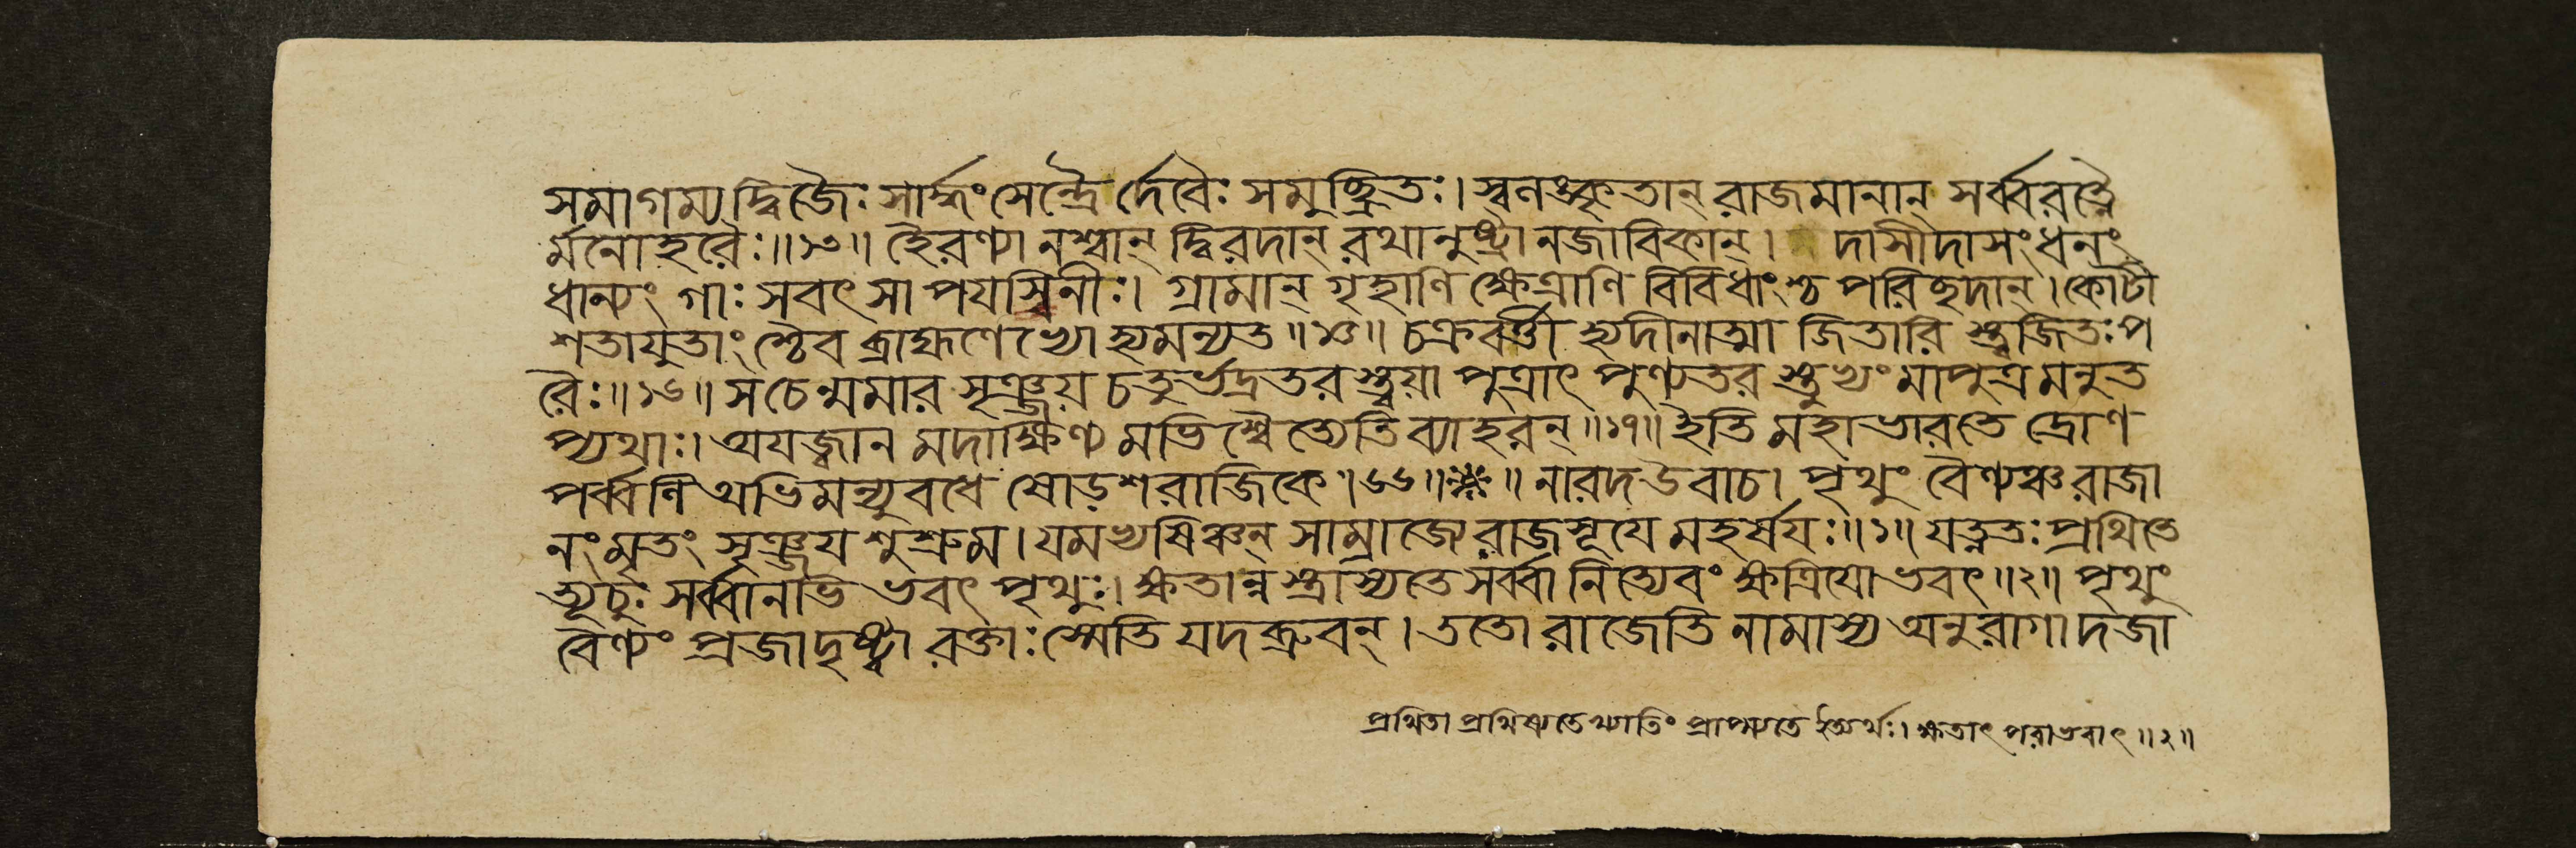 সমাগম্য দ্বিজৈঃ সার্দ্ধং সেন্দ্রৈ র্দেবৈঃ সমুচ্ছ্রিতঃ। স্বলঙ্কৃতান্ রাজমানান্ সর্ব্বরত্নৈ
র্মনোহরৈঃ॥১৩॥ হৈরণ্যা নশ্বান্ দ্বিরদান্ রথানুষ্ট্রা নজাবিকান্। দাসীদাসংধনং
ধান্যং গাঃ সবৎ সা পযস্বিনীঃ। গ্রামান্ গৃহাণি ক্ষেত্রাণি বিবিধাংশ্চ পরিচ্ছদান্। কোটী
শতাযুতাং শ্চৈব ব্রাহ্মণেভ্যো হ্যমন্যত॥১৫॥ চক্রবর্ত্তী হ্যদীনাত্মা জিতারি স্ত্বজিতঃ প
রৈঃ॥১৬॥ স চেন্মমার সৃঞ্জয় চতুর্ভদ্রতর স্ত্বয়া পুত্রাৎ পুণ্যতর স্তুভ্যং মাপুত্র মনুত
প্যথাঃ। অযজ্বান মদাক্ষিণ্য মভি শ্বৈত্যেতি ব্যাহরন্॥১৭॥ ইতি মহাভারতে দ্রোণ
পর্ব্বণি অভিমন্যুবধে ষোড়শরাজিকে॥৬৬॥ ॥ নারদ উবাচ। পৃথুং বৈণ্যঞ্চ রাজা
নং মৃতং সৃঞ্জয শুশ্রুম। যমভ্যষিঞ্চন্ সাম্রাজ্যে রাজসূযে মহর্ষযঃ॥১॥ যত্নতঃ প্রথিতে
ত্যূচুঃ সর্ব্বানভি ভবৎ পৃথুঃ। ক্ষতান্ন স্ত্রাস্যতে সর্ব্বা নিত্যেবং ক্ষত্রিযো ভবৎ॥২॥ পৃথুং
বৈণ্যং প্রজাদৃষ্ট্বা রক্তাঃ স্মেতি যদব্রুবন্। ততো রাজেতি নামাস্য অনুরাগা দজা
প্রথিতা প্রথিষ্যতে খ্যাতিং প্রাপ্স্যতে ইত্যর্থঃ। ক্ষতাৎ পরাভবাৎ॥২॥